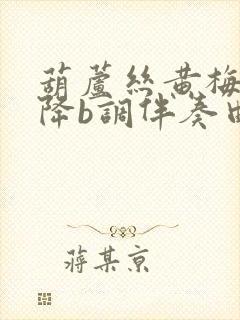 葫蘆絲黄梅
降b調伴奏曲
蔣某京